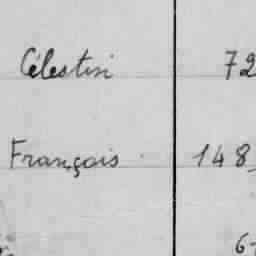 Célestin 72
François 148
6